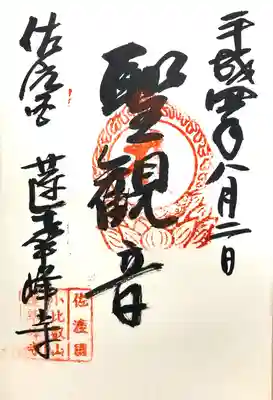 平成四年八月二日
聖観音
佐渡国 蓮華峰寺
佐渡國
小比叡山